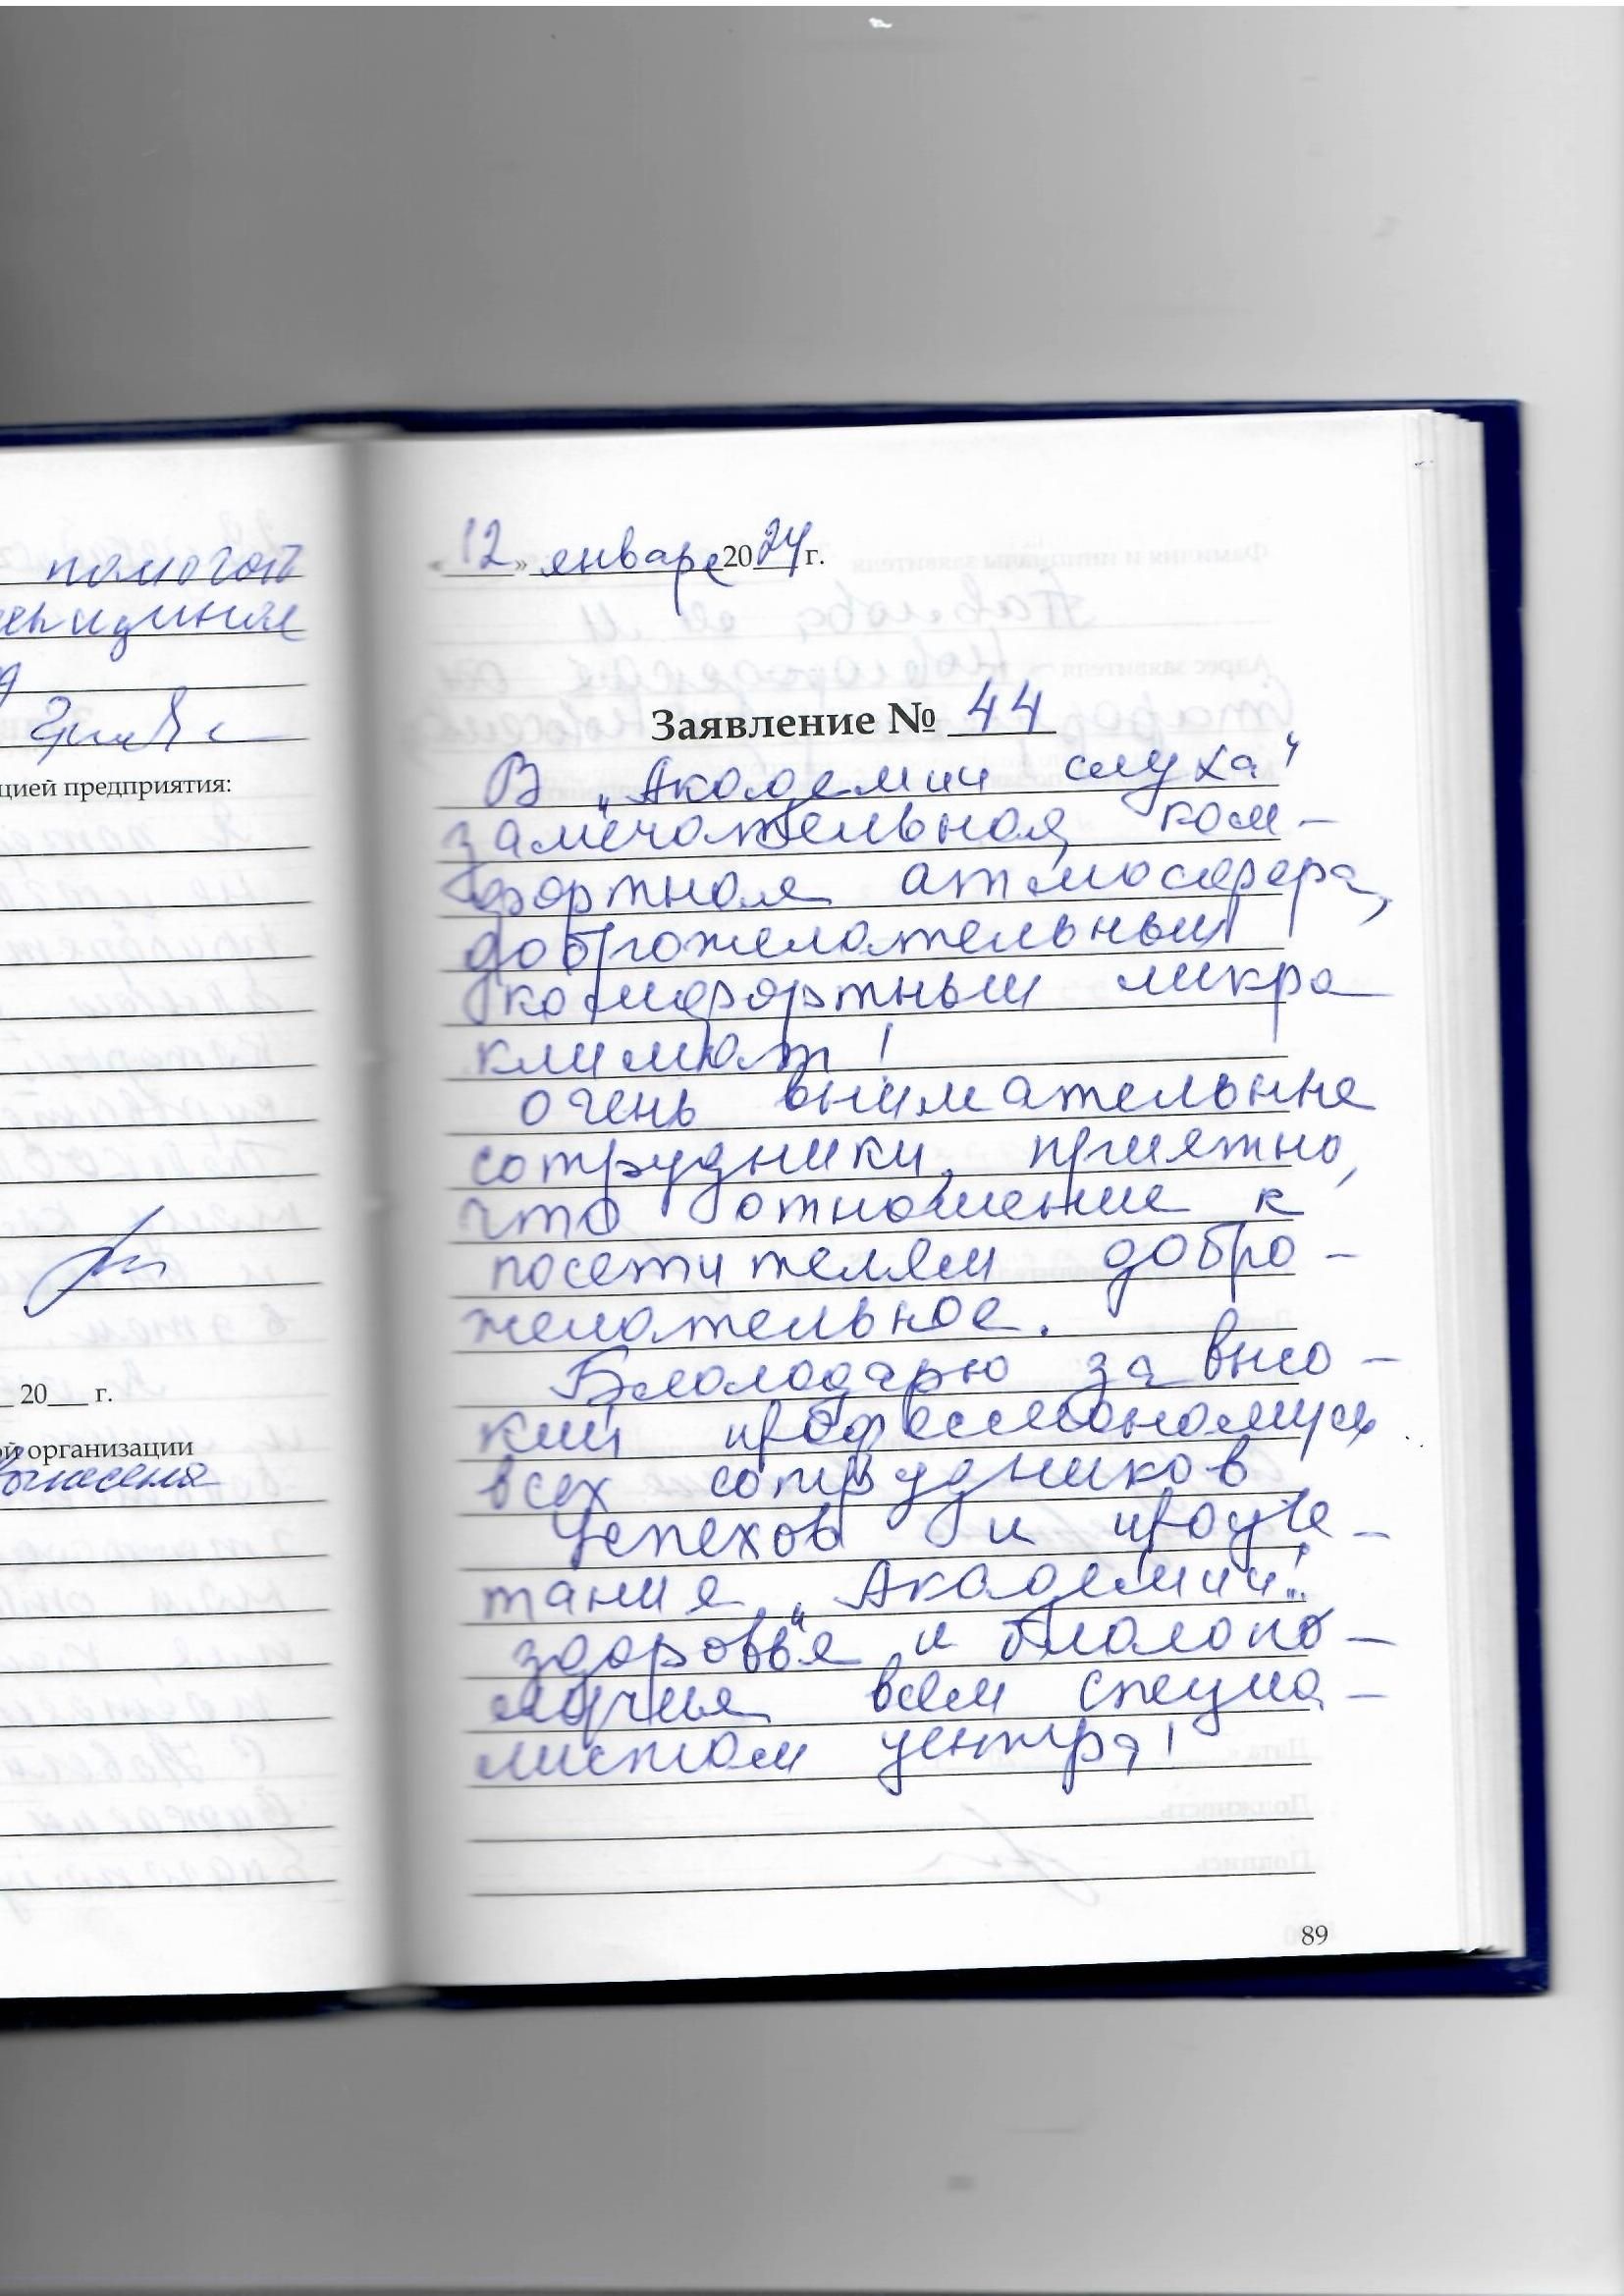 помогат
цией предприятия:
20 г.
ой организации
«12» января 2024 г.
Заявление № 44
В „Академии слуха"
замечательная ком-
фортная атмосфера,
доброжелательный
комфортный микро
климат!
очень внимательные
сотрудники, приятно,
что отношение к
посетителям добро-
желательное.
Благодарю за высо-
кий профессионализм
всех сотрудников
Успехов и процве-
тания „Академии"!
здоровья и благопо-
лучия всем специа-
листам центра!
89